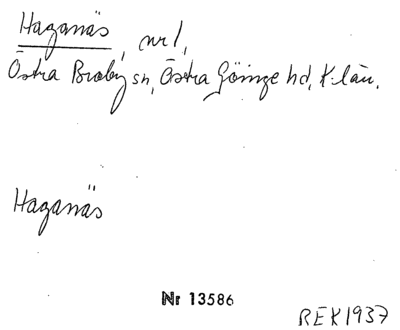 Haganäs, nr 1,
Östra Broby sn, Östra Göinge hd, K-län.
Haganäs
Nr 13586
REK 1937